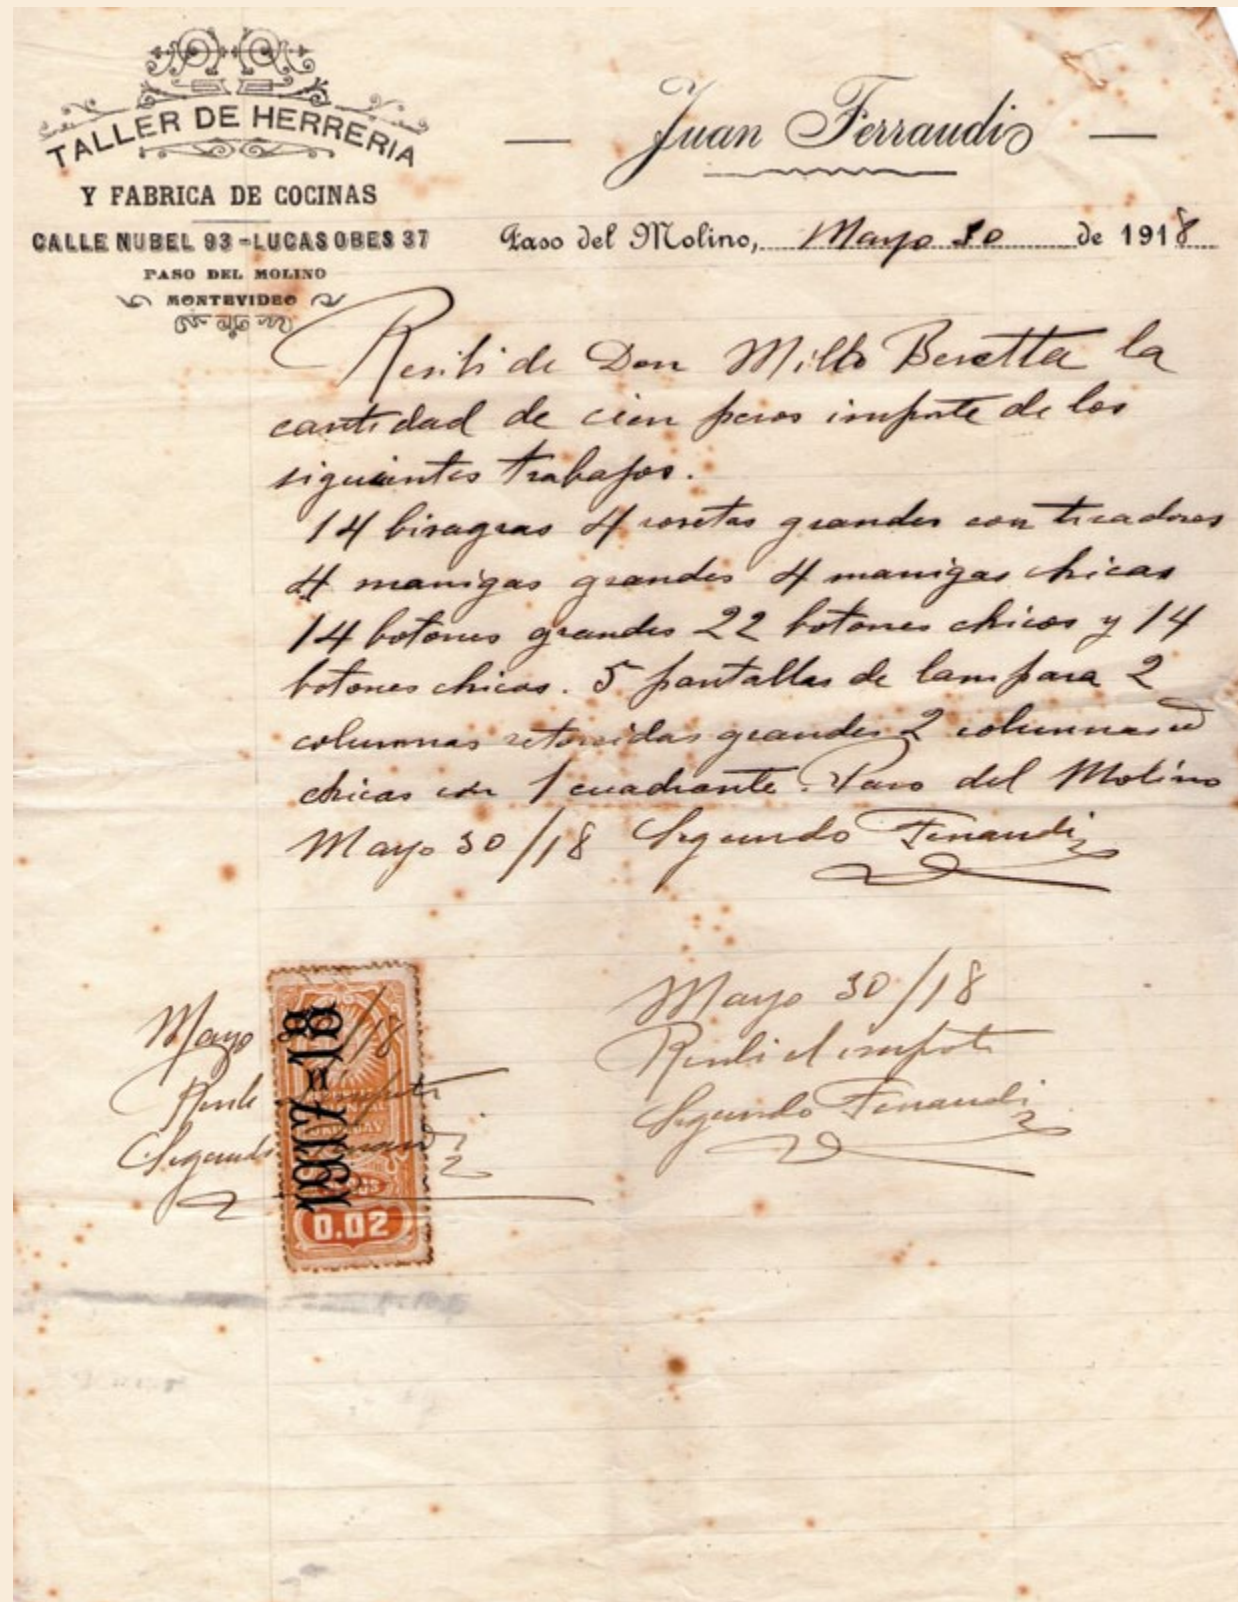 TALLER DE HERRERIA
Y FABRICA DE COCINAS
CALLE NUBEL 93-LUCAS OBES 37
PASO DEL MOLINO
MONTEVIDEO
Juan Ferraudi
Paso del Molino, Mayo 30 de 1918
Recibi de Don Milto Beretta la
cantidad de cien pesos importe de los
siguientes trabajos.
14 bisagras 4 rosetas grandes con tiradores
4 manigas grandes 4 manigas chicas
14 botones grandes 22 botones chicos y 14
botones chicos. 5 pantallas de lampara 2
columnas retorcidas grandes 2 columnas
chicas con 1 cuadrante. Paso del Molino
Mayo 30/18 Segundo Ferraudi
Mayo 30/18
Recibi el importe
Segundo Ferraudi
Mayo /18
Recibi importe
Segundo Ferraudi
1917-18
URUGUAY
0.02